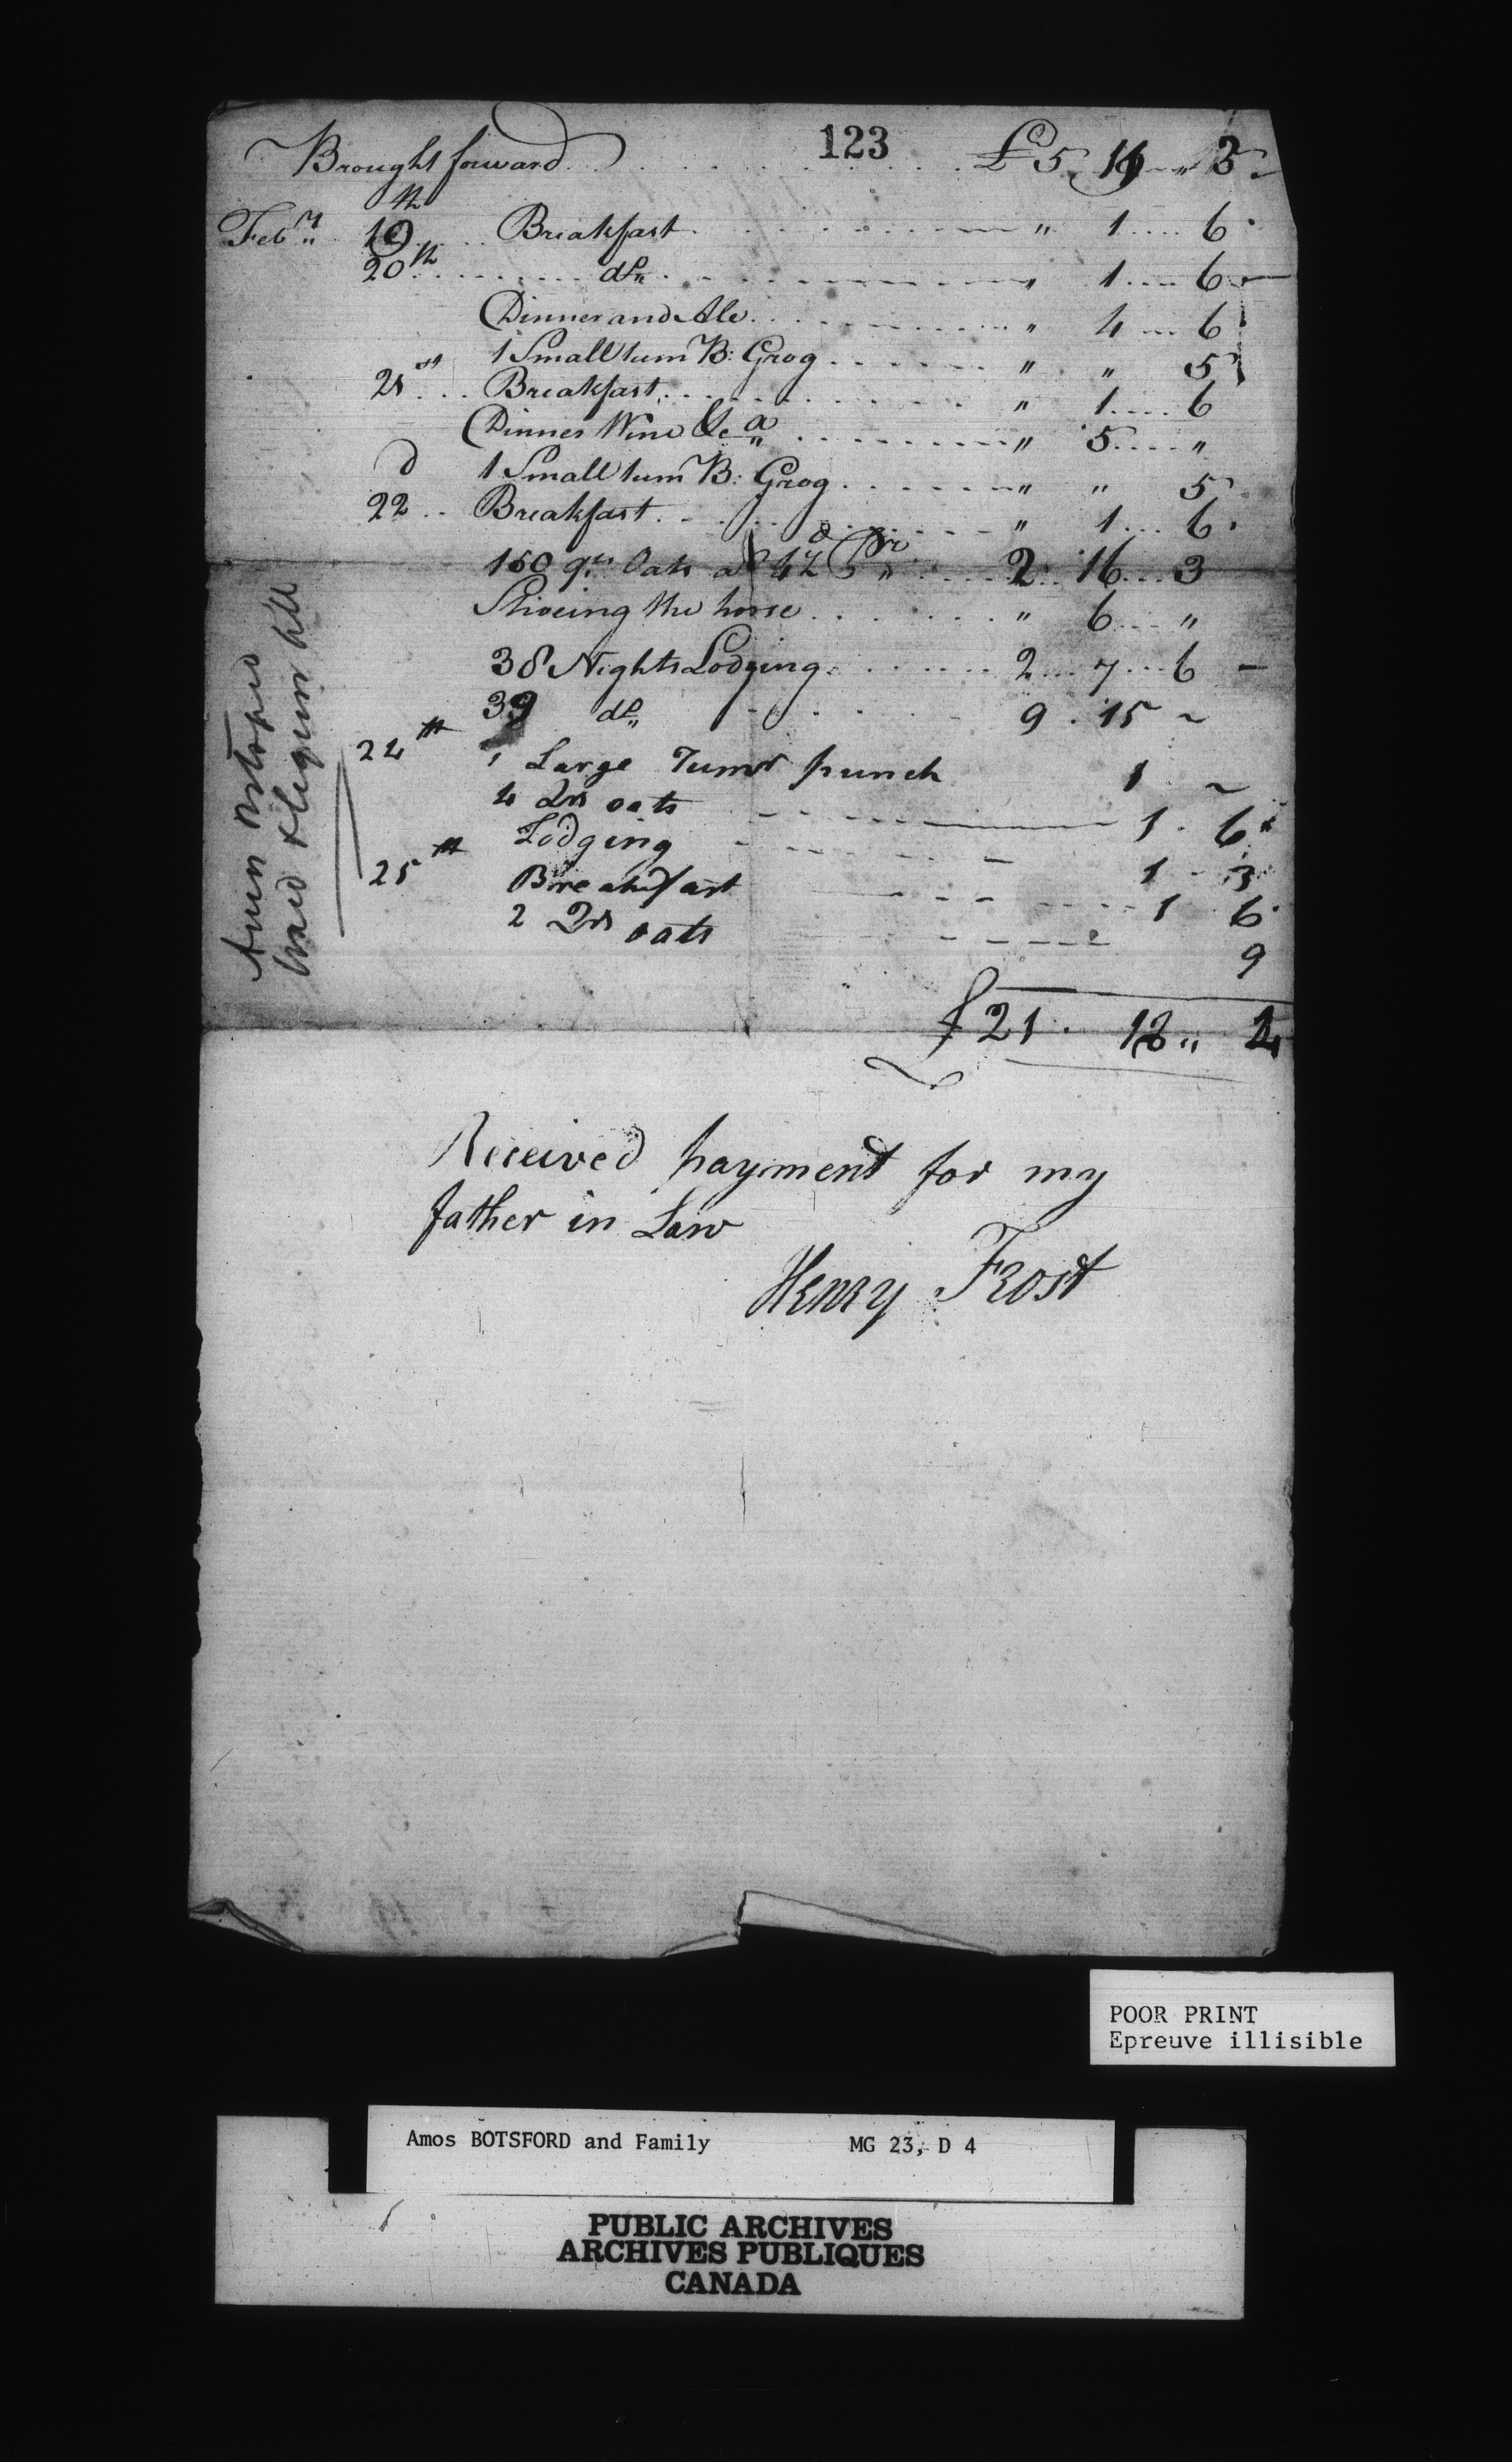 123
Brought forward £5 16 " 3
Feb.ry 19th Breakfast " 1 6
20th do " 1 6
Dinner and Ale " 4 6
1 Small tum B: Grog " " 5
21st Breakfast " 1 6
Dinner Wine &ca " 5 "
d 1 Small tum B: Grog " " 5
22 Breakfast " 1 6
150 qts Oats a 4½d Pr 2 16 3
Shoeing the horse " 6 "
38 Nights Lodging 2 7 6
39 do 9 15 ~
24th 1 Large Tumr punch 1 ~
4 Qts oats 1 6
Lodging 1 3
25th Breakfast 1 6
2 Qts oats 9
£21 . 18 " 4
Received payment for my
father in Law
Henry Frost
POOR PRINT
Epreuve illisible
Amos BOTSFORD and Family MG 23, D 4
PUBLIC ARCHIVES
ARCHIVES PUBLIQUES
CANADA